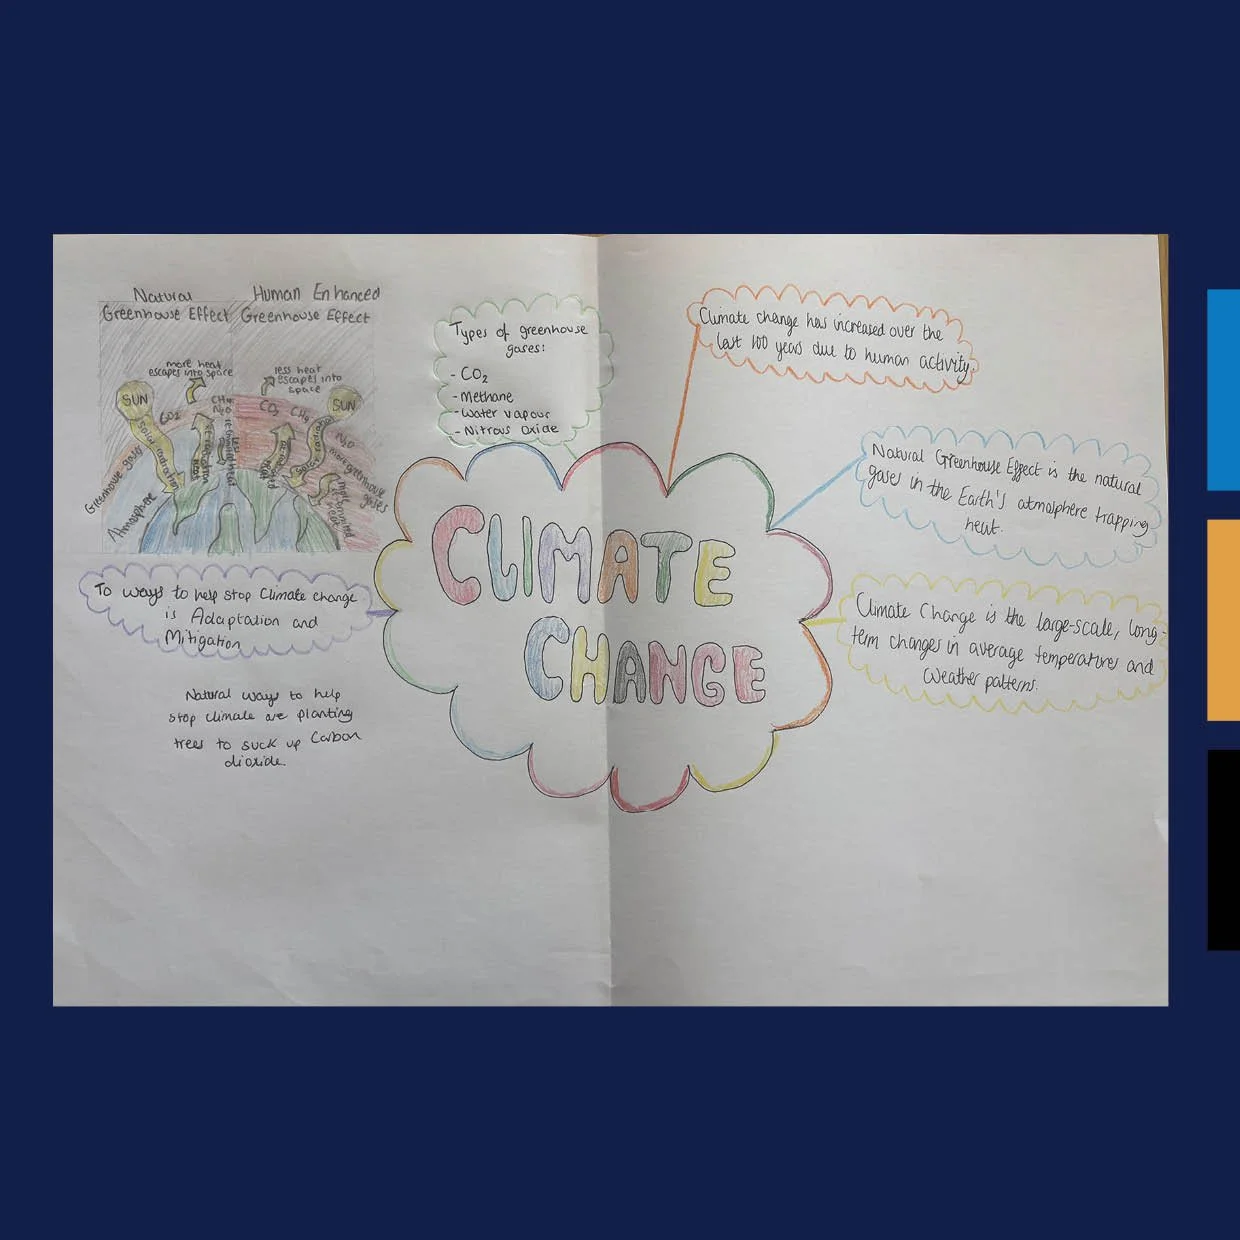 Natural
Greenhouse Effect
more heat
escapes into space
SUN
CO2
CH4
N2O
Solar radiation
Greenhouse gases
Atmosphere
Human Enhanced
Greenhouse Effect
less heat
escapes into
space
SUN
CO2
CH4
N2O
more greenhouse
gases
Types of greenhouse
gases:
- CO2
- Methane
- Water vapour
- Nitrous Oxide
Climate change has increased over the
last 100 years due to human activity.
Natural Greenhouse Effect is the natural
gases in the Earth's atmosphere trapping
heat.
Climate Change is the large-scale, long-
term changes in average temperatures and
Weather patterns.
CLIMATE
CHANGE
To ways to help stop Climate change
is Adaptation and
Mitigation
Natural ways to help
stop climate are planting
trees to suck up Carbon
dioxide.